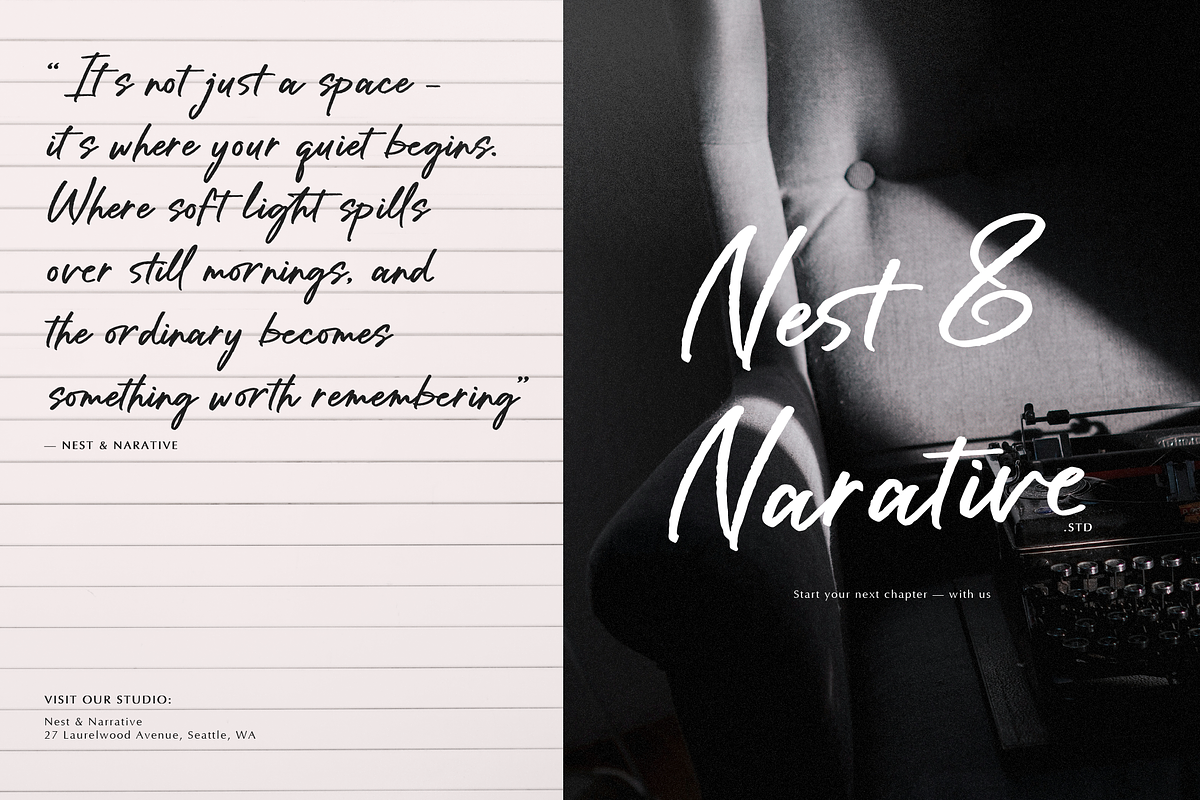 “ It's not just a space –
it's where your quiet begins.
Where soft light spills
over still mornings, and
the ordinary becomes
something worth remembering”
— NEST & NARATIVE
VISIT OUR STUDIO:
Nest & Narrative
27 Laurelwood Avenue, Seattle, WA
Nest &
Narative
.STD
Start your next chapter — with us